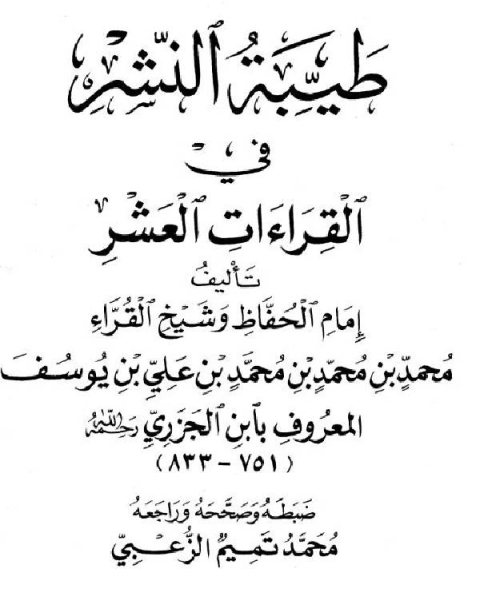 طَيِّبَةُ ٱلنَّشْرِ
فِي
ٱلْقِرَاءَاتِ ٱلْعَشْرِ
تَأْلِيفُ
إِمَامِ ٱلْحُفَّاظِ وَشَيْخِ ٱلْقُرَّاءِ
مُحَمَّدِ بْنِ مُحَمَّدِ بْنِ مُحَمَّدِ بْنِ عَلِيِّ بْنِ يُوسُفَ
ٱلمَعْرُوفِ بِٱبْنِ ٱلْجَزَرِيِّ رَحِمَهُ ٱللَّهُ
(٧٥١ - ٨٣٣)
ضَبَطَهُ وَصَحَّحَهُ وَرَاجَعَهُ
مُحَمَّد تَمِيمُ الزُّعْبِيّ